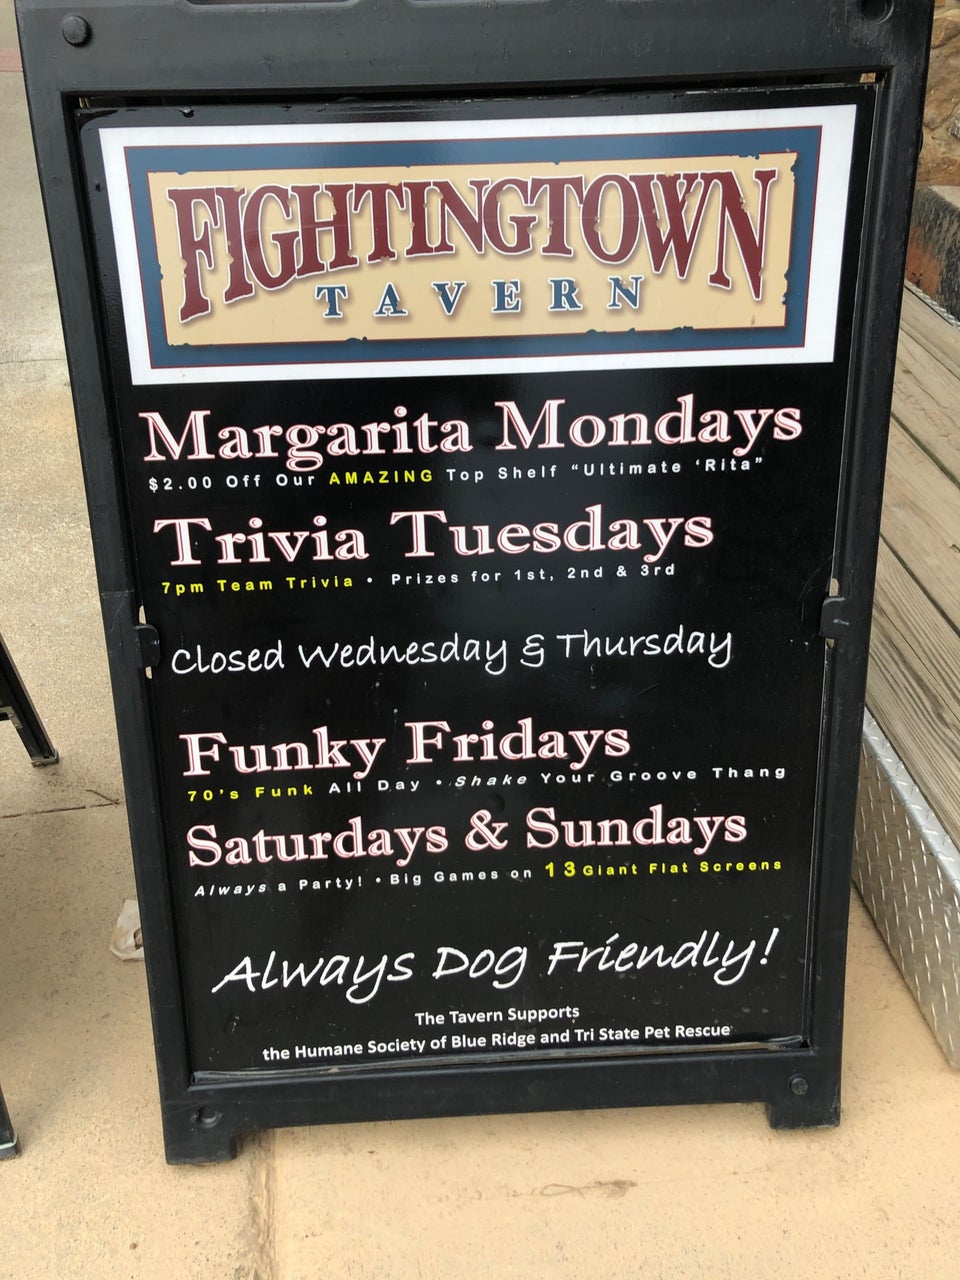 FIGHTINGTOWN
TAVERN
Margarita Mondays
$2.00 Off Our AMAZING Top Shelf "Ultimate 'Rita"
Trivia Tuesdays
7pm Team Trivia • Prizes for 1st, 2nd & 3rd
Closed Wednesday & Thursday
Funky Fridays
70's Funk All Day • Shake Your Groove Thang
Saturdays & Sundays
Always a Party! • Big Games on 13 Giant Flat Screens
Always Dog Friendly!
The Tavern Supports
the Humane Society of Blue Ridge and Tri State Pet Rescue